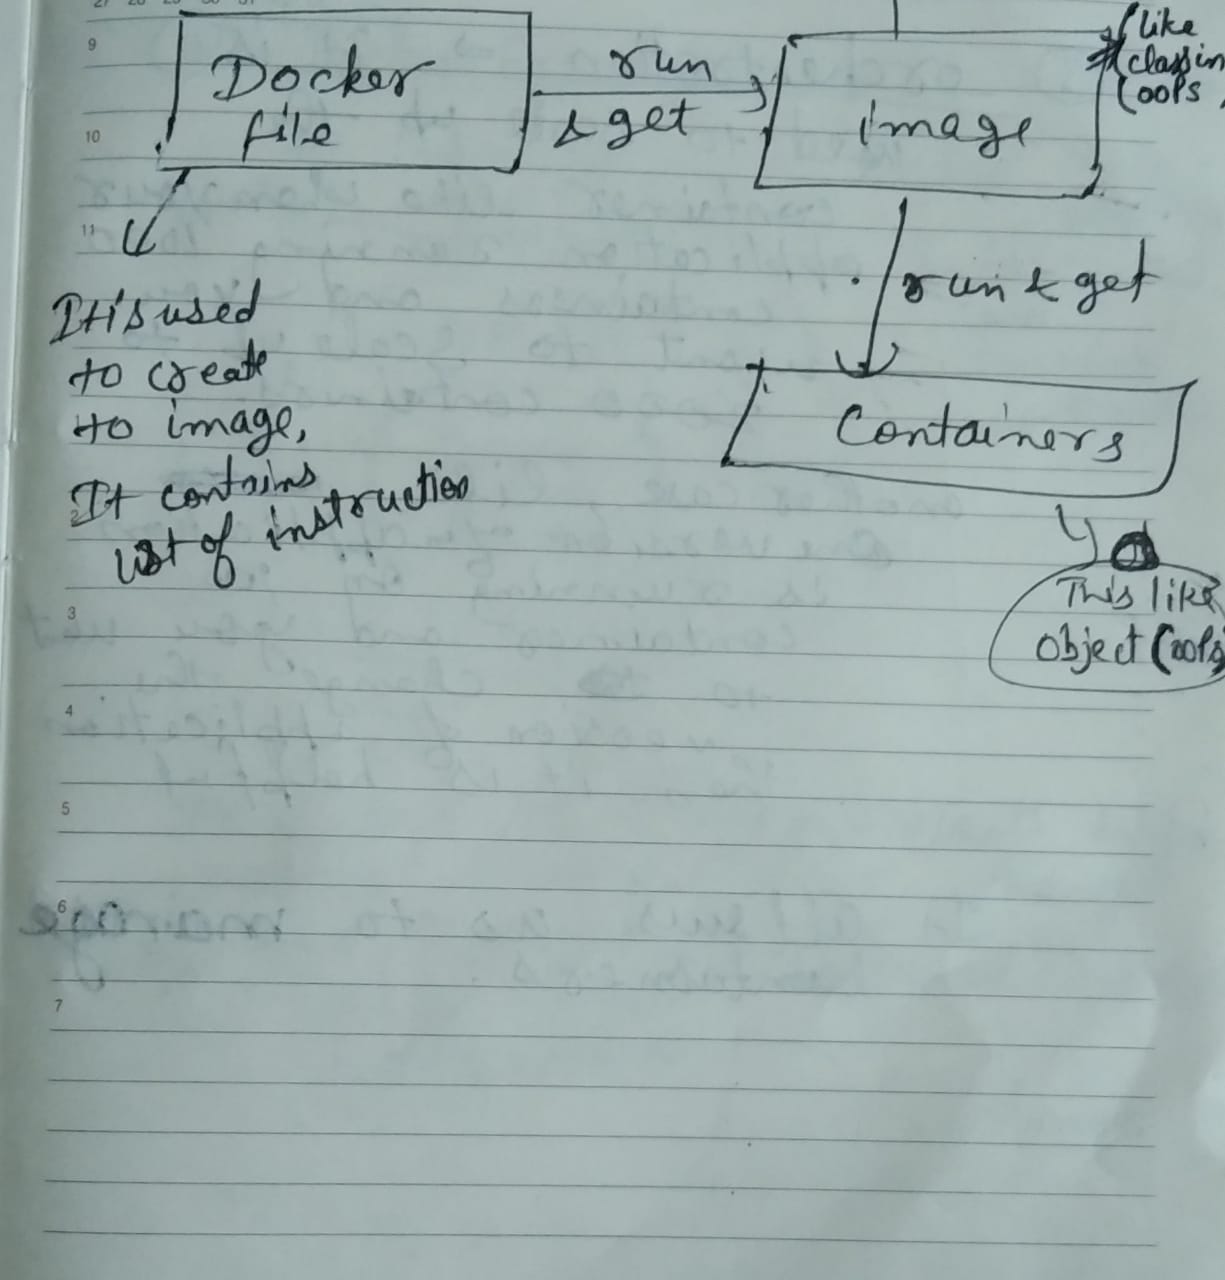 27 28 29 30 31
9
Docker
file
run
& get
image
(like
class in
(oops
10
11
It is used
to create
to image,
It contains
list of instruction
run & get
Containers
This like
object (oops
2
3
4
5
6
7